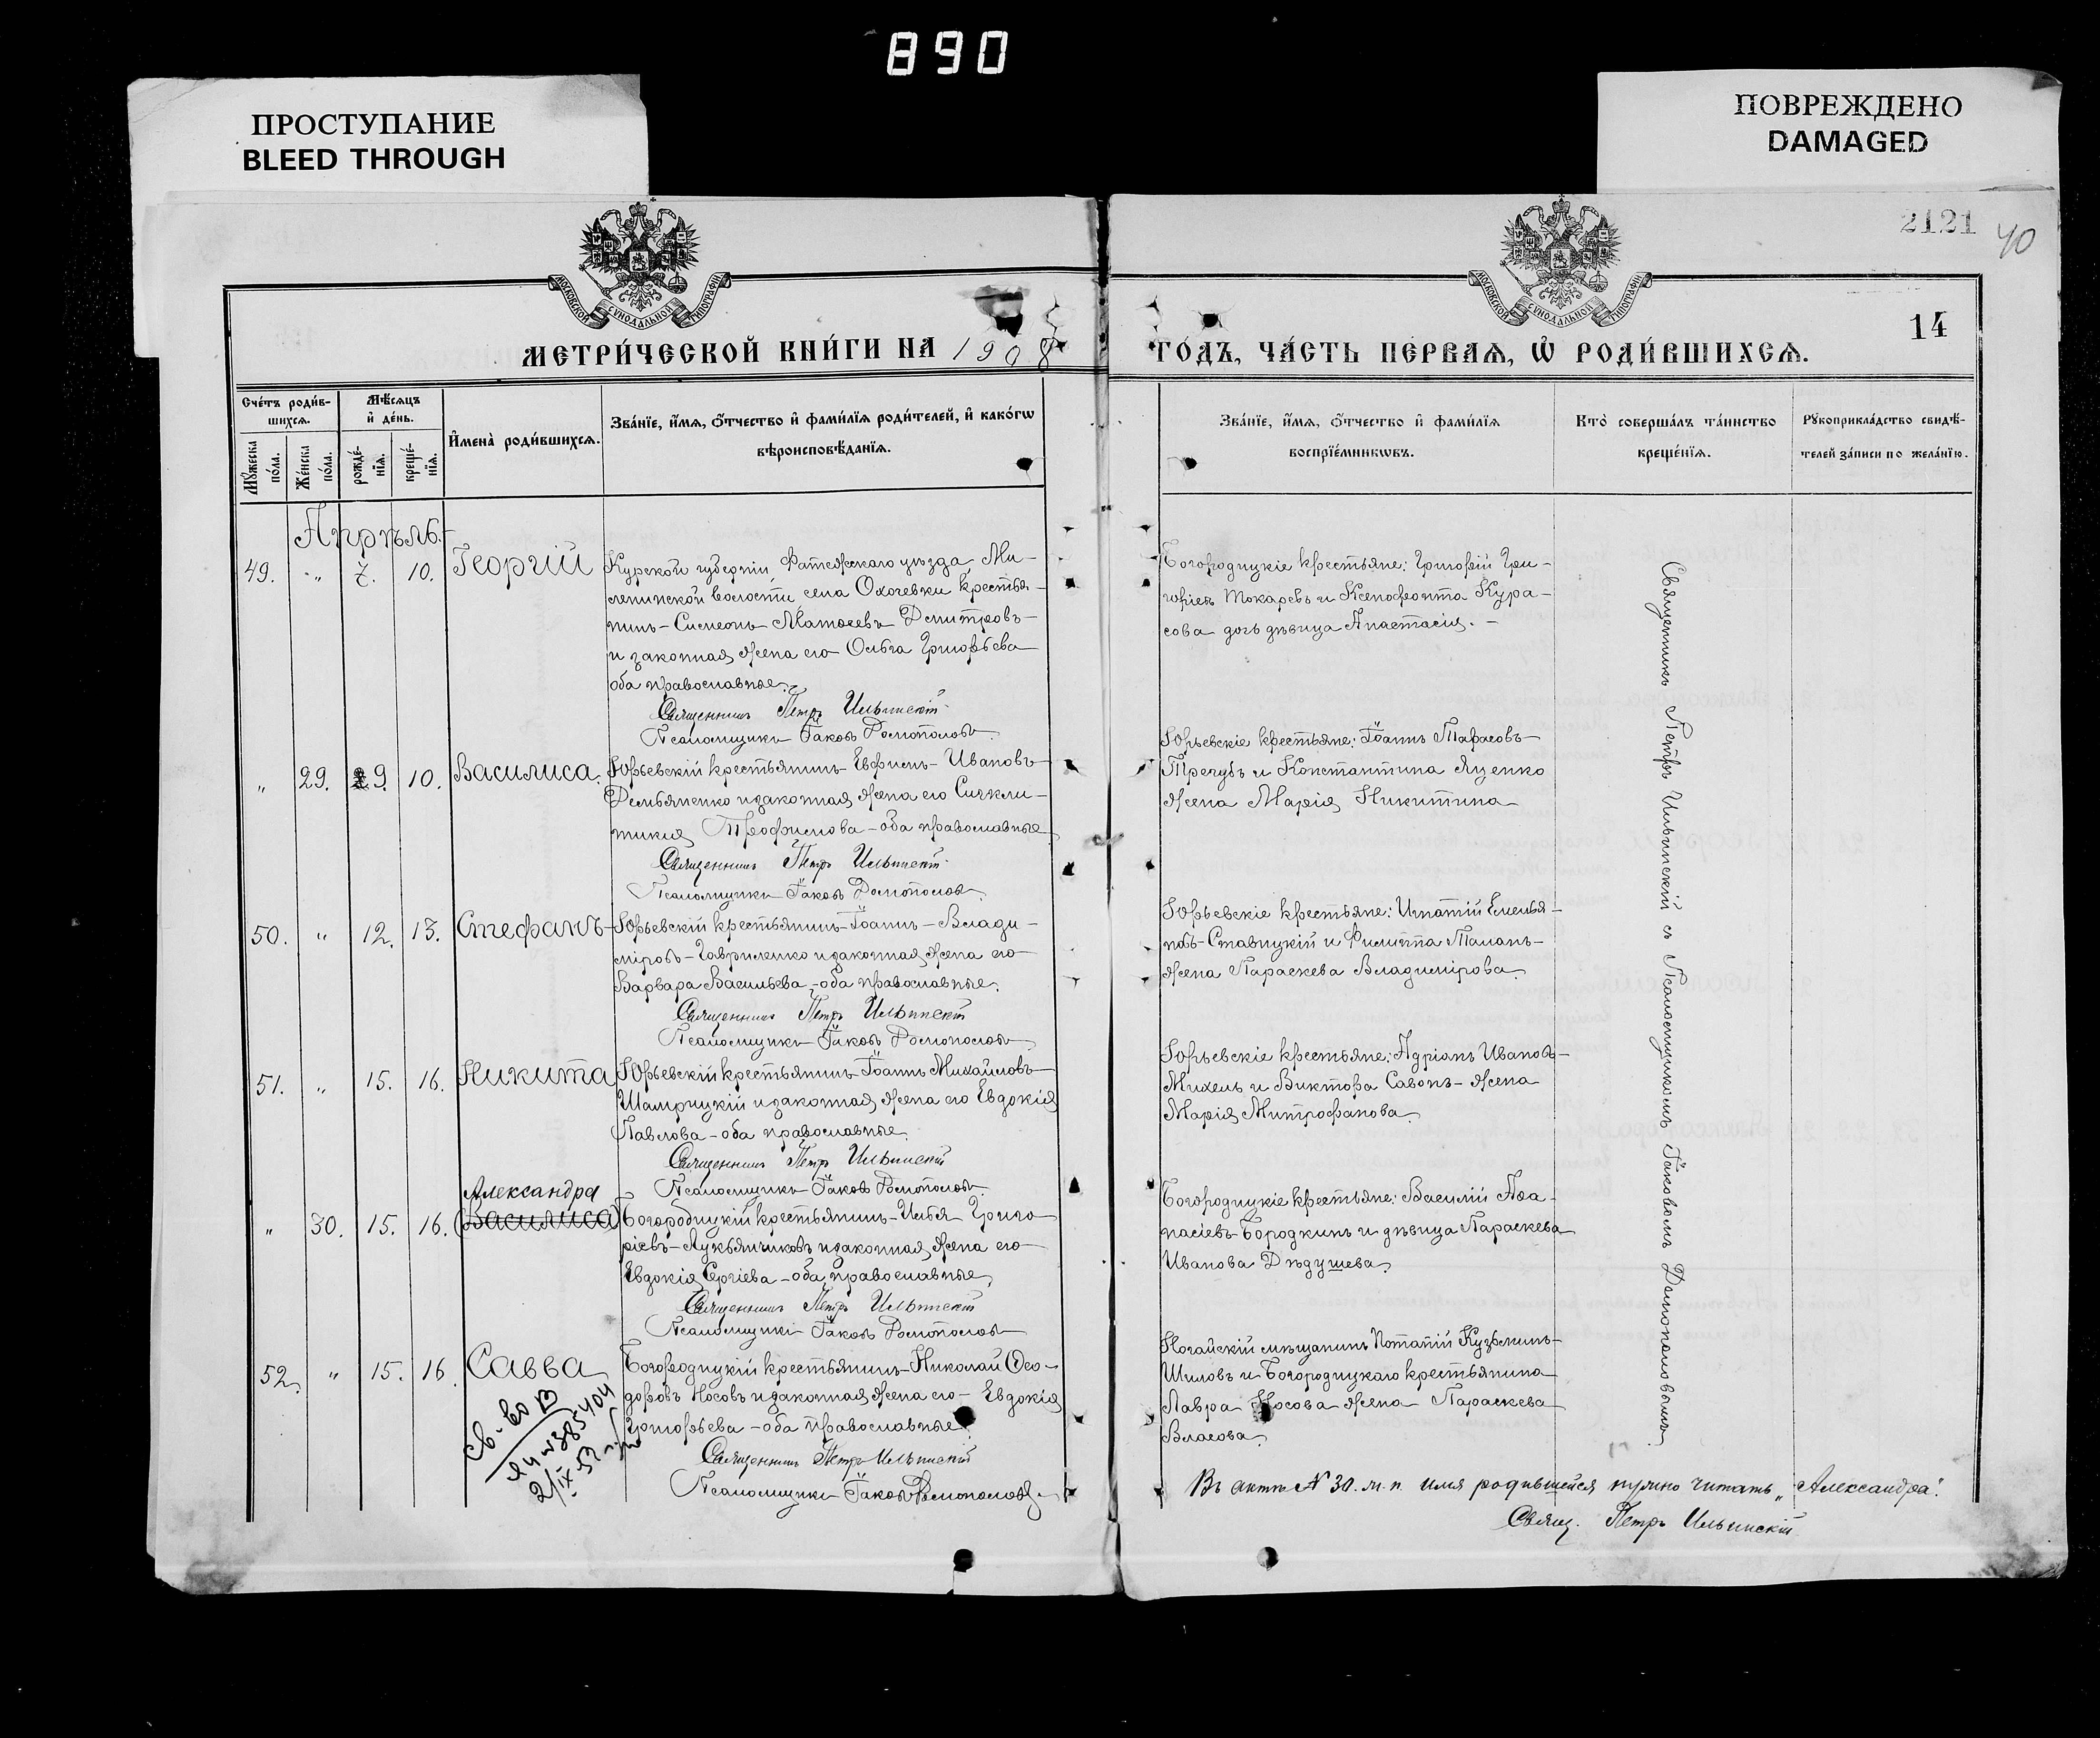 890
ПРОСТУПАНИЕ
BLEED THROUGH
ПОВРЕЖДЕНО
DAMAGED
2121
40
МОСКОВСКОЙ СѴНОДАЛЬНОЙ ТИПОГРАФІИ
МОСКОВСКОЙ СѴНОДАЛЬНОЙ ТИПОГРАФІИ
14
МЕТРИ́ЧЕСКОЙ КНИ́ГИ НА 1908 ГО́ДЪ, ЧА́СТЬ ПЕ́РВАѦ, Ѡ҆ РОДИ́ВШИХСѦ.
Сче́тъ роди́в-
шихсѧ.
Мꙋ́жеска по́ла.
Же́нска по́ла.
Мѣ́сѧцъ
и҆ де́нь.
рожде́-нїѧ.
креще́-нїѧ.
И҆мена̀ роди́вшихсѧ.
Зва́нїе, и҆́мѧ, ѻ҆́тчество и҆ фами́лїѧ роди́телей, и҆ како́гѡ
вѣроисповѣ́данїѧ.
Зва́нїе, и҆́мѧ, ѻ҆́тчество и҆ фами́лїѧ
воспрїе́мникѡвъ.
Кто̀ соверша́лъ та́инство
креще́нїѧ.
Рꙋкоприкла́дство свидѣ́-
телей за́писи по жела́нїю.
Апрѣль
49. " 7. 10. Георгій
Курской губерніи, Фатежскаго уѣзда, Ми-
ленинской волости села Охочевки крестья-
нинъ - Симеонъ Матѳеевъ Дмитревъ
и законная жена его Ольга Григорьева
оба православные.
Священникъ Петръ Ильинскій
Псаломщикъ Іаковъ Домонополовъ
Богородицкіе крестьяне: Григорій Гри-
горіевъ Токаревъ и Ксенофонта Кура-
сова дочь дѣвица Анастасія. -
" 29. 9. 10. Василиса.
Юрьевскій крестьянинъ - Евфимъ - Ивановъ
Демьяненко и законная жена его Синкли-
тикія Трофимова - оба православные
Священникъ Петръ Ильинскій
Псаломщикъ Іаковъ Домонополовъ
Юрьевскіе крестьяне: Іоаннъ Тарасовъ
Трегубъ и Константина Яценко
жена Марія Никитина
50. " 12. 13. Стефанъ
Юрьевскій крестьянинъ - Іоаннъ - Влади-
міровъ - Гавриленко и законная жена его
Варвара Васильева, - оба православные.
Священникъ Петръ Ильинскій
Псаломщикъ Іаковъ Домонополовъ
Юрьевскіе крестьяне: Игнатій Емелья-
новъ - Ставицкій и Филиппа Таланъ -
жена Параскева Владимірова.
51. " 15. 16. Никита
Юрьевскій крестьянинъ Іоаннъ Михайловъ
Шамрицкій и законная жена его Евдокія
Павлова - оба православные.
Священникъ Петръ Ильинскій
Псаломщикъ Іаковъ Домонополовъ
Юрьевскіе крестьяне: Адріанъ Ивановъ
Михель и Виктора Савонъ - жена
Марія Митрофанова.
Александра
" 30. 15. 16. (Василиса)
Богородицкій крестьянинъ - Илья Григо
ріевъ - Лукьянчиковъ и законная жена его
Евдокія Сергіева - оба православные,
Священникъ Петръ Ильинскій
Псаломщикъ Іаковъ Домонополовъ
Богородицкіе крестьяне: Василій Аѳа-
насіевъ Бородкинъ и дѣвица Параскева
Иванова Дѣдушева.
52. " 15. 16. Савва
Богородицкій крестьянинъ Николай Ѳео-
доровъ Носовъ и законная жена его - Евдокія
Григорьева - оба православные.
Священникъ Петръ Ильинскій
Псаломщикъ Іаковъ Домонополовъ.
Св-во
385404
2/IX 52
Ногайскій мѣщанинъ Потапій Кузьминъ
Шиловъ и Богородицкаго крестьянина
Лавра Носова жена Параскева
Власова.
Священникъ Петръ Ильинскій съ Псаломщикомъ Іаковомъ Домонополовымъ.
Въ актѣ № 30. ж. п. имя родившейся нужно читать „Александра“.
Свящ. Петръ Ильинскій